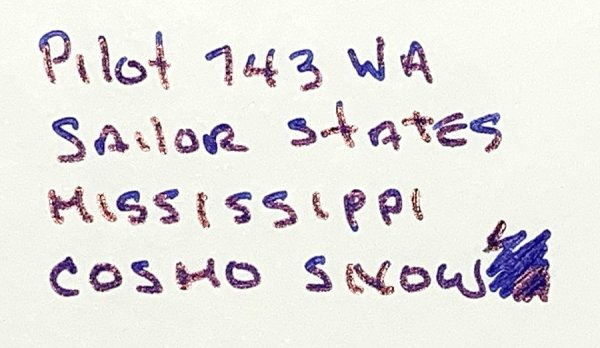 Pilot 743 WA
SAilOR StAtES
MISSISSIPPI
COSMO SNOW